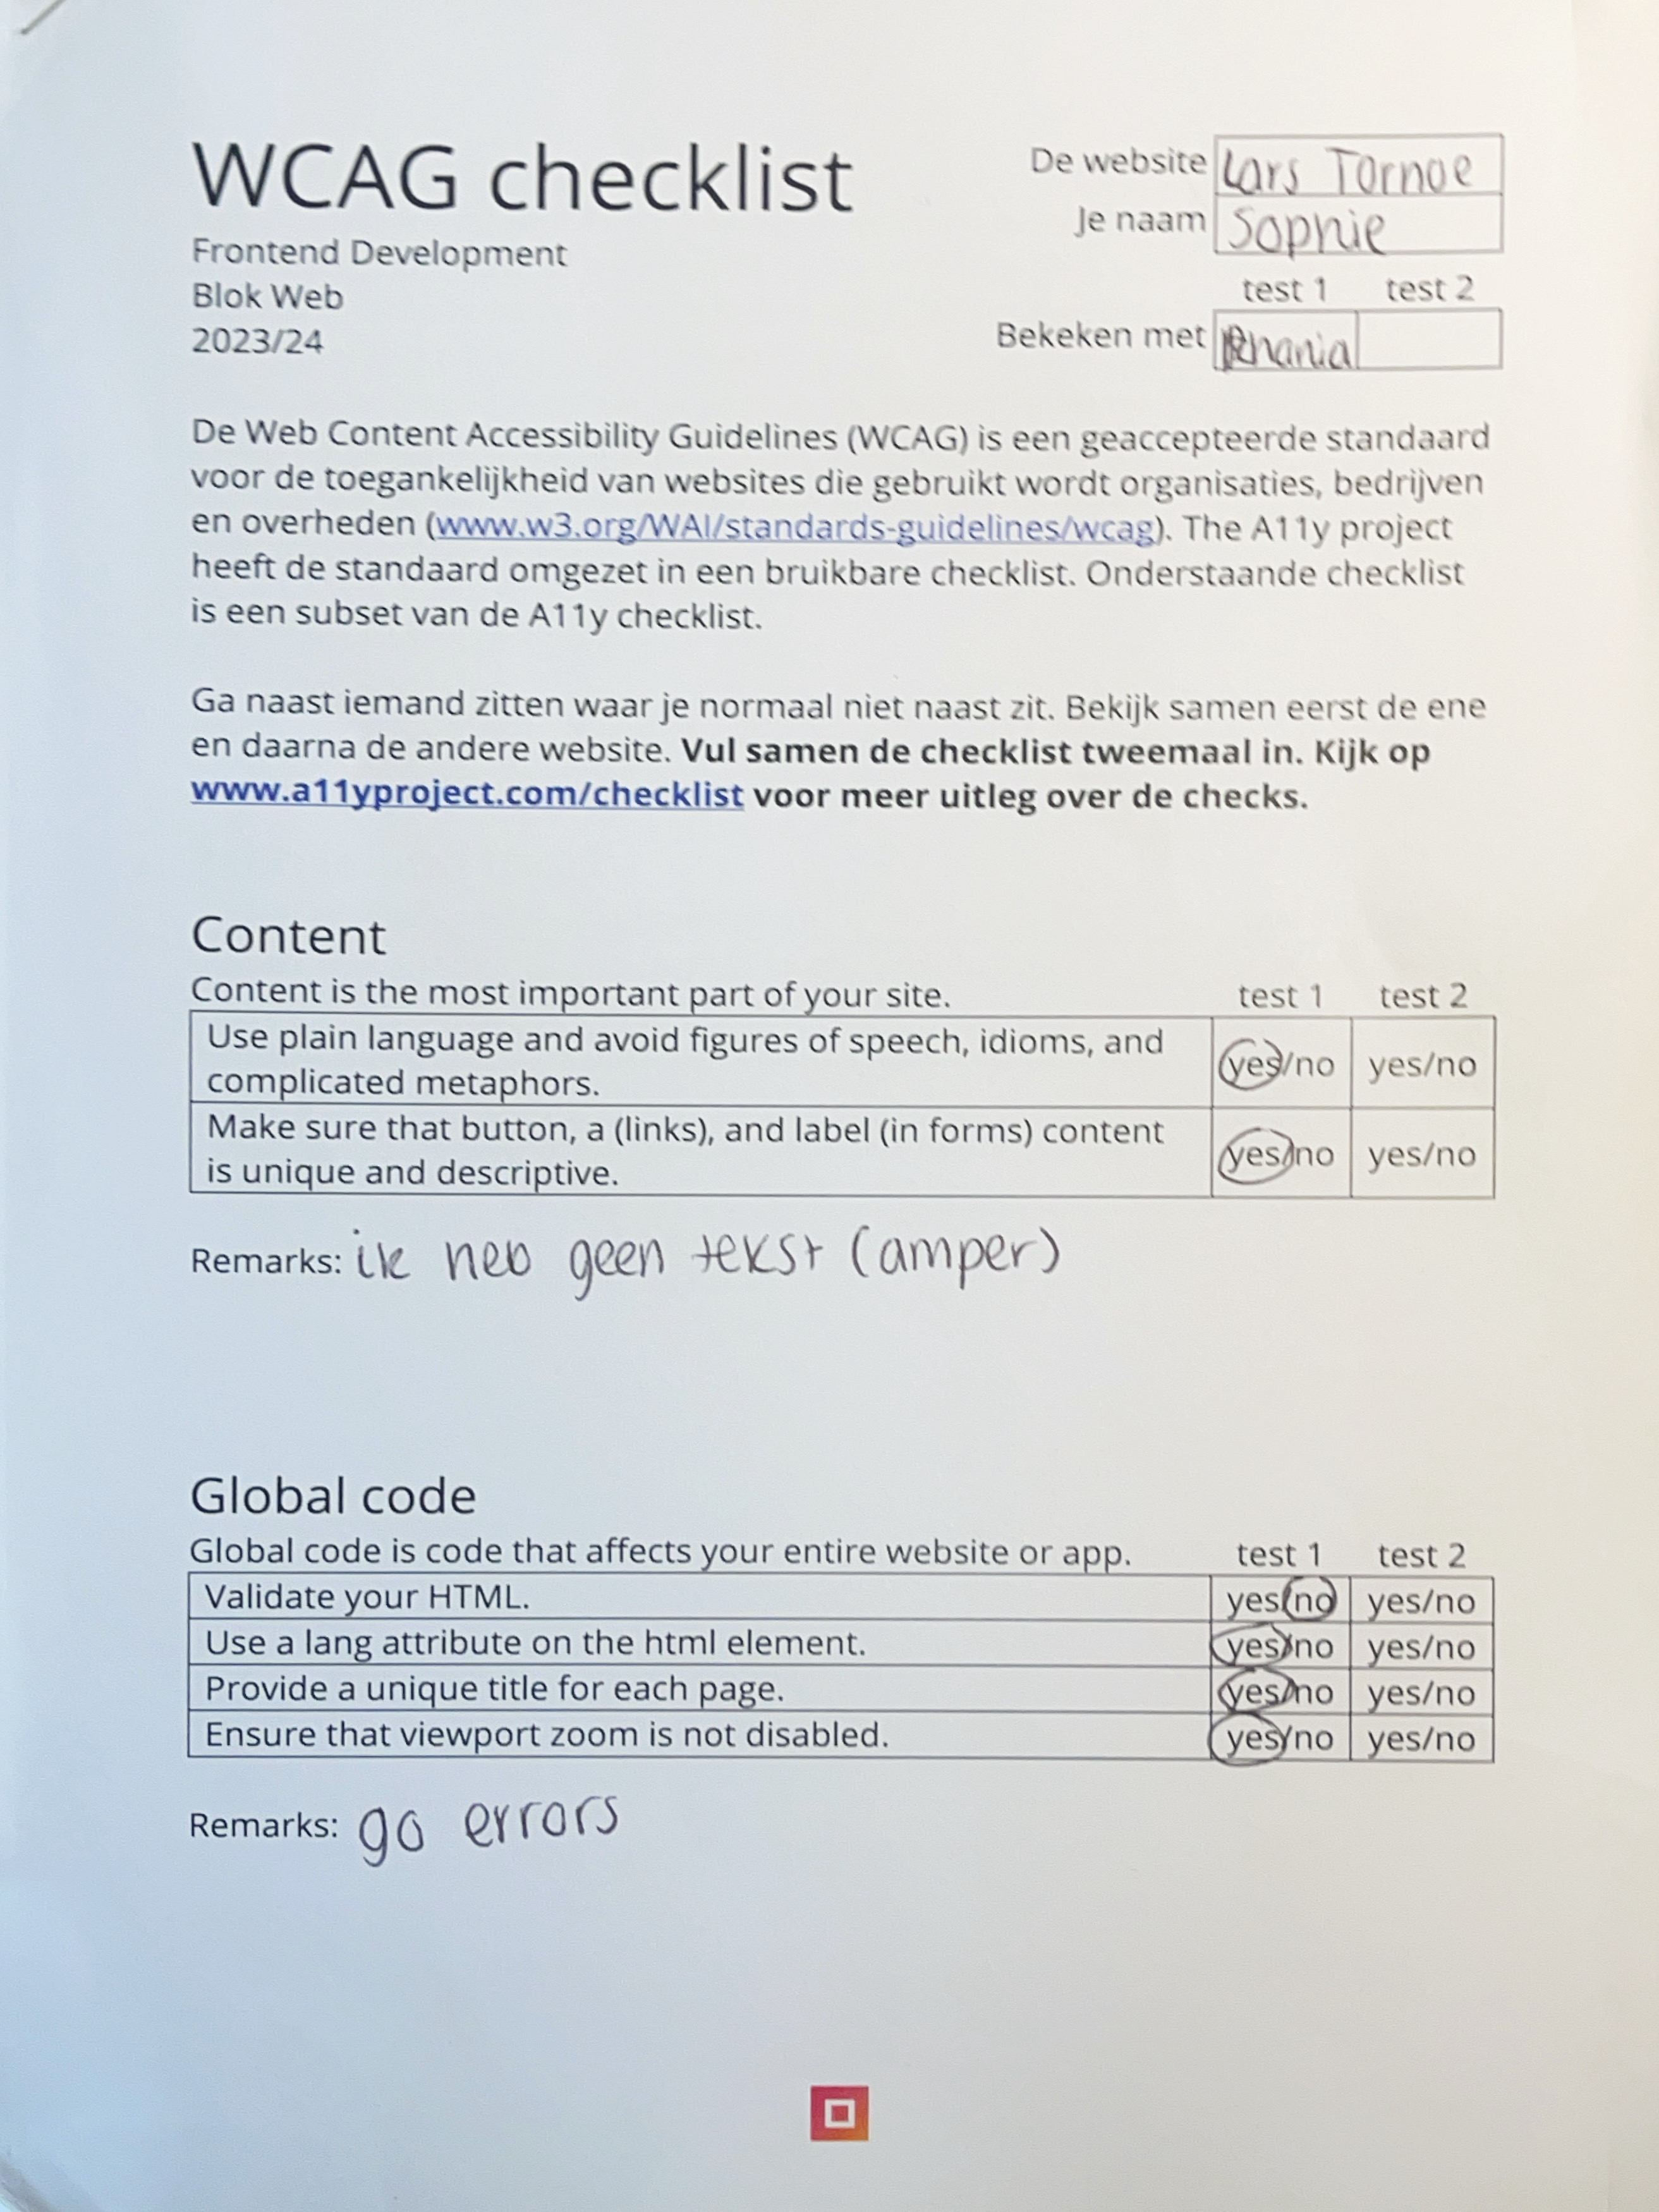 WCAG checklist
Frontend Development
Blok Web
2023/24
De website Lars Tornoe
Je naam Sophie
test 1 test 2
Bekeken met Rhania
De Web Content Accessibility Guidelines (WCAG) is een geaccepteerde standaard
voor de toegankelijkheid van websites die gebruikt wordt organisaties, bedrijven
en overheden (www.w3.org/WAI/standards-guidelines/wcag). The A11y project
heeft de standaard omgezet in een bruikbare checklist. Onderstaande checklist
is een subset van de A11y checklist.
Ga naast iemand zitten waar je normaal niet naast zit. Bekijk samen eerst de ene
en daarna de andere website. Vul samen de checklist tweemaal in. Kijk op
www.a11yproject.com/checklist voor meer uitleg over de checks.
Content
Content is the most important part of your site. test 1 test 2
Use plain language and avoid figures of speech, idioms, and
complicated metaphors. yes/no yes/no
Make sure that button, a (links), and label (in forms) content
is unique and descriptive. yes/no yes/no
Remarks: ik heb geen tekst (amper)
Global code
Global code is code that affects your entire website or app. test 1 test 2
Validate your HTML. yes/no yes/no
Use a lang attribute on the html element. yes/no yes/no
Provide a unique title for each page. yes/no yes/no
Ensure that viewport zoom is not disabled. yes/no yes/no
Remarks: errors